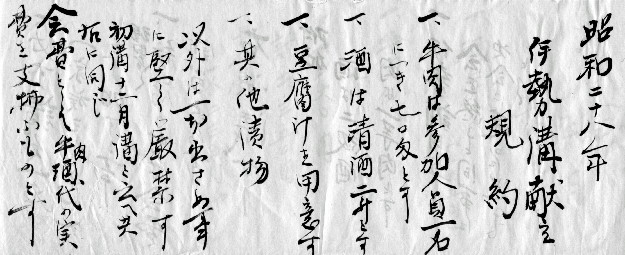 昭和二十八年
伊勢講献立
規約
一、牛肉は参加人員一名
に付き七〇匁とす
一、酒は清酒二升とす
一、豆腐汁を用意す
一、其の他漬物
以外は一切出さぬ事
に堅く厳禁す
初講十二月講と云へ共
右に同じ
会費として牛肉、酒代の実
費を支払ふものとす